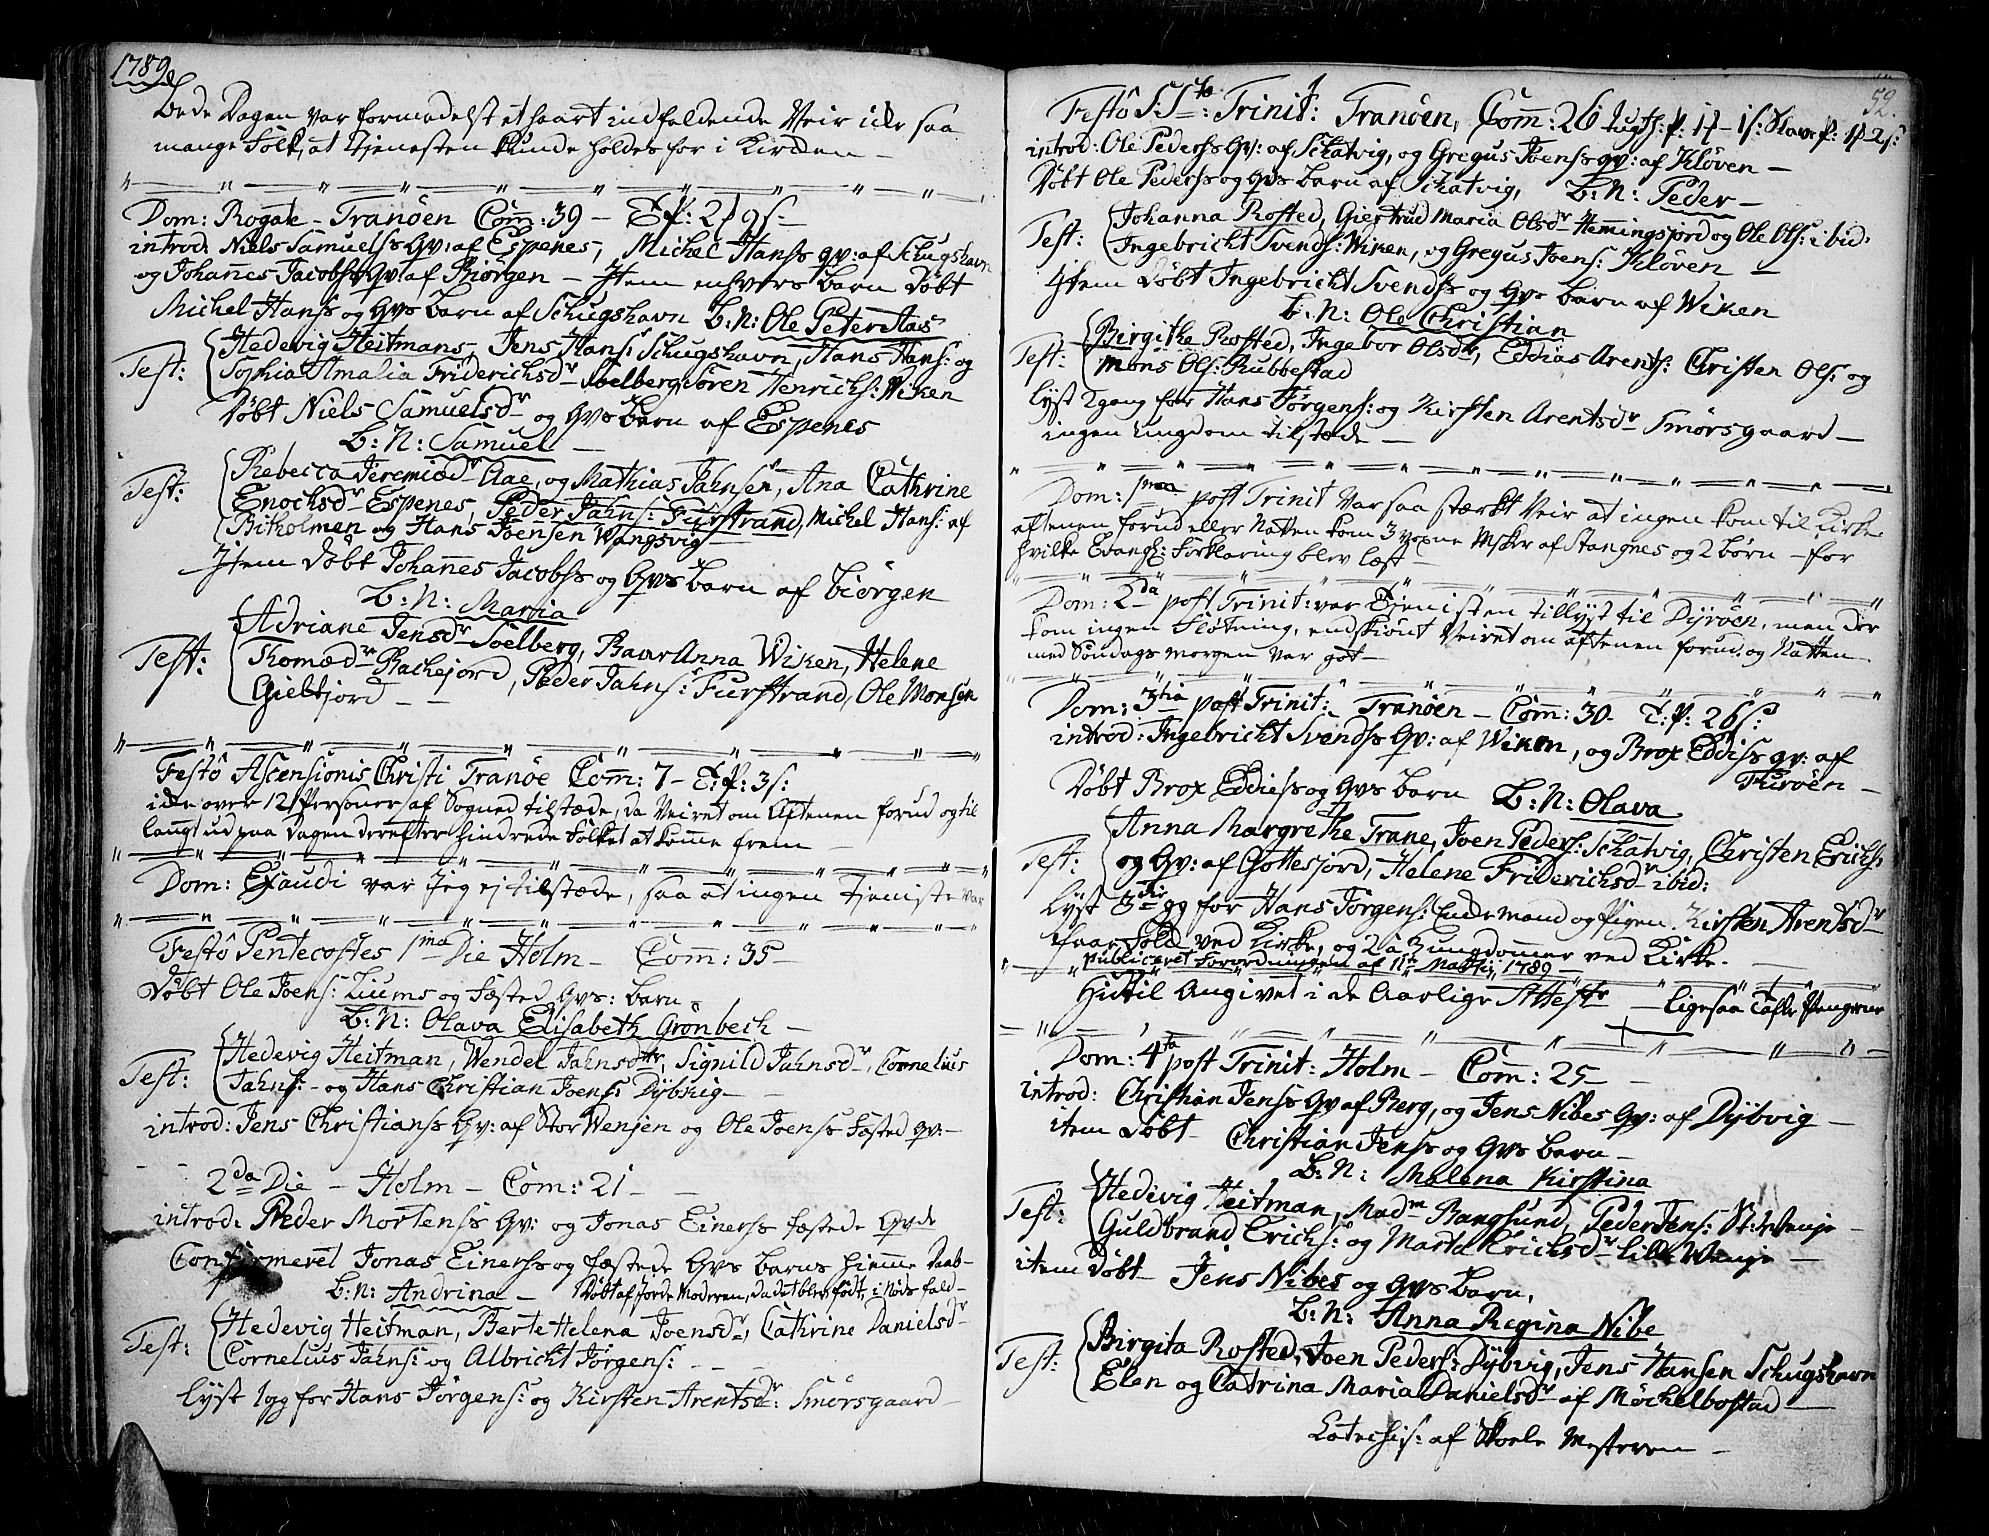 1789
Bede Dagen var formedelst et haart indfaldende Veir ikke saa
mange Folk, at Tjenesten kunde holdes for i Kirken –
Dom: Rogate – Tranöen Com̄: 39 –
introd: Niels Samuelss Qv: af Espenes, Michel Hanss qv: af Schugshavn
og Johañes Jacobss Qv: af Biorgen – Item enhvers barn Döbt
Michel Hanss og Qvs barn af Schugshavn b:N: Ole Peter Aas
Test: Hedevig Heitmans, Jens Hans: Schugshavn, Hans Hans: og
Sophia Amalia Friderichsdr Soelberg, Sören Henrichs: Wiken
Döbt Niels Samuels og Qvs barn af Espenes
b:N: Samuel –
Test: Rebecca Jeremiædr Aae, og Mathias Jahnsen, Ana Cathrine
Enochsdr Espenes, Peder Jahns: Furstrand, Michel Hans: af
Bitholmen og Hans Joensen Wangsvig
Item Döbt Johañes Jacobss og Qvs barn af Biörgen
b:N: Maria
Test: Adriane Jensdr Soelberg, Baar Anna Wiken, Helene
Thomædr Rachejord, Peder Jahns: Furstrand, Ole Monsen
Giebfjord – –
Festô Ascensionis Christi Tranöe Com̄: 7 – T:P: 3s:
ikke over 12 Personer af Sognet tilstæde, da Veiret om Aftenen forud og til
langt ud paa Dagen derefter hindrede Folket at kom̄e frem –
Dom: Exaudi var jeg ej tilstæde, saa at ingen Tjeniste var
Festô Pentecostes 1ma Die Holm – Com̄: 35 –
Döbt Ole Joens: Liums og Fæsted Qvs: barn
b:N: Olava Elisabeth Grönbech –
Test: Hedevig Heitman, Wendel Jahnsdtr, Signild Jahnsdr, Cornelius
Jahns: – og Hans Christian Joens: Dybvig –
introd: Jens Christianss Qv: af Stor Wensen og Ole Joenss Fæsted qv: –
2da Die – Holm – Com: 21 –
introd: Peder Mortenss Qv: og Jonas Einerss fæstede Qvde
Confirmeret Jonas Einerss og fæstede Qvs barns hiem̄e Daab –
b:N: Andrina – Döbt af Jordemoderen, da det blev födt, i Nöds fald –
Test: Hedevig Heitman, Berte Helena Joensdr, Cathrine Danielsdr
Cornelius Jahns: og Albricht Jörgens: – – –
lyst 1 gg for Hans Jörgens: og Kirsten Arentsdr: Smörsgaard –
52.
Festô S:S:tæ Trinit: Tranöen, Com̄: 26
introd: Ole Pederss Qv: af Schatvig, og Gregus Joenss qv: af Klöven –
Döbt Ole Pederss og Qvs barn af Schatvig, b:N: Peder –
Test: Johanna Rosted, Giertrud Maria Olsdr Hemingsjord og Ole Ols: ibid:
Ingebricht Svends: Wiken, og Gregus Joens: Klöven –
Item Döbt Ingebricht Svendss og Qvs barn af Wiken
b:N: Ole Christian
Test: Birgithe Rosted, Ingebor Olsdr, Eddias Arents: Christen Ols: og
Mons Ols: Rubbestad
lyst 2 gang for Hans Jörgens: og Kirsten Arentsdr Smörsgaard –
ingen ungdom tilstæde –
Dom: 1ma post Trinit Var saa stærkt Veir at ingen kom til Kirke
aftenen forud eller Natten kom 3 voxne Msker af Stangnes og 2 börn – for
hvilke Evangl: Forklaring blev læst –
Dom: 2da post Trinit: var Tjenisten tillyst til Dyröen, men der
kom ingen Fløtning, endskiönt Veiret om aftenen forud og Natten
med Söndags morgen var got –
Dom: 3tia post Trinit: Tranöen – Com̄: 30 – T:P: 26s:
introd: Ingebricht Svendss Qv: af Wiken, og Brox Eddiss qv: af
Turöen –
Döbt Brox Eddiess og Qvs barn b:N: Olava
Test: Anna Margrethe Trane, Joen Peders: Schatvig, Christen Erichs:
og Qv: af Gottesjord, Helene Friderichsdr ibid:
lyst 3die gg for Hans Jörgens: Enkemand og Pigen Kirsten Arentsdr
faae Folk ved Kirke, og 2 à 3 ungdomer ved Kirke. –
Publiceret Forordningen af 11te Martii 1789 –
Hidtil Angivet i de Aarlige Attester – ligesaa Tafle Pengene
Dom: 4ta post Trinit: Holm – Com̄: 25 –
introd: Christian Jenss Qv af Berg, og Jens Nibes Qv: af Dybvig –
item Döbt – Christian Jenss og Qvs barn –
b:N: Malena Kirstina
Test: Hedevig Heitman, Madm Bangsund, Peder Jens: St: Wenje –
Guldbrand Erichs: og Marta Erichsdr lille Wenje –
item Döbt – Jens Nibes og Qvs barn,
b:N: Anna Regina Nibe
Test: Birgita Rosted, Joen Peders: Dybvig, Jens Hansen Schugshavn
Elen og Catrina Maria Danielsdr af Möchelbostad –
Catechis: af Skole Mesteren –